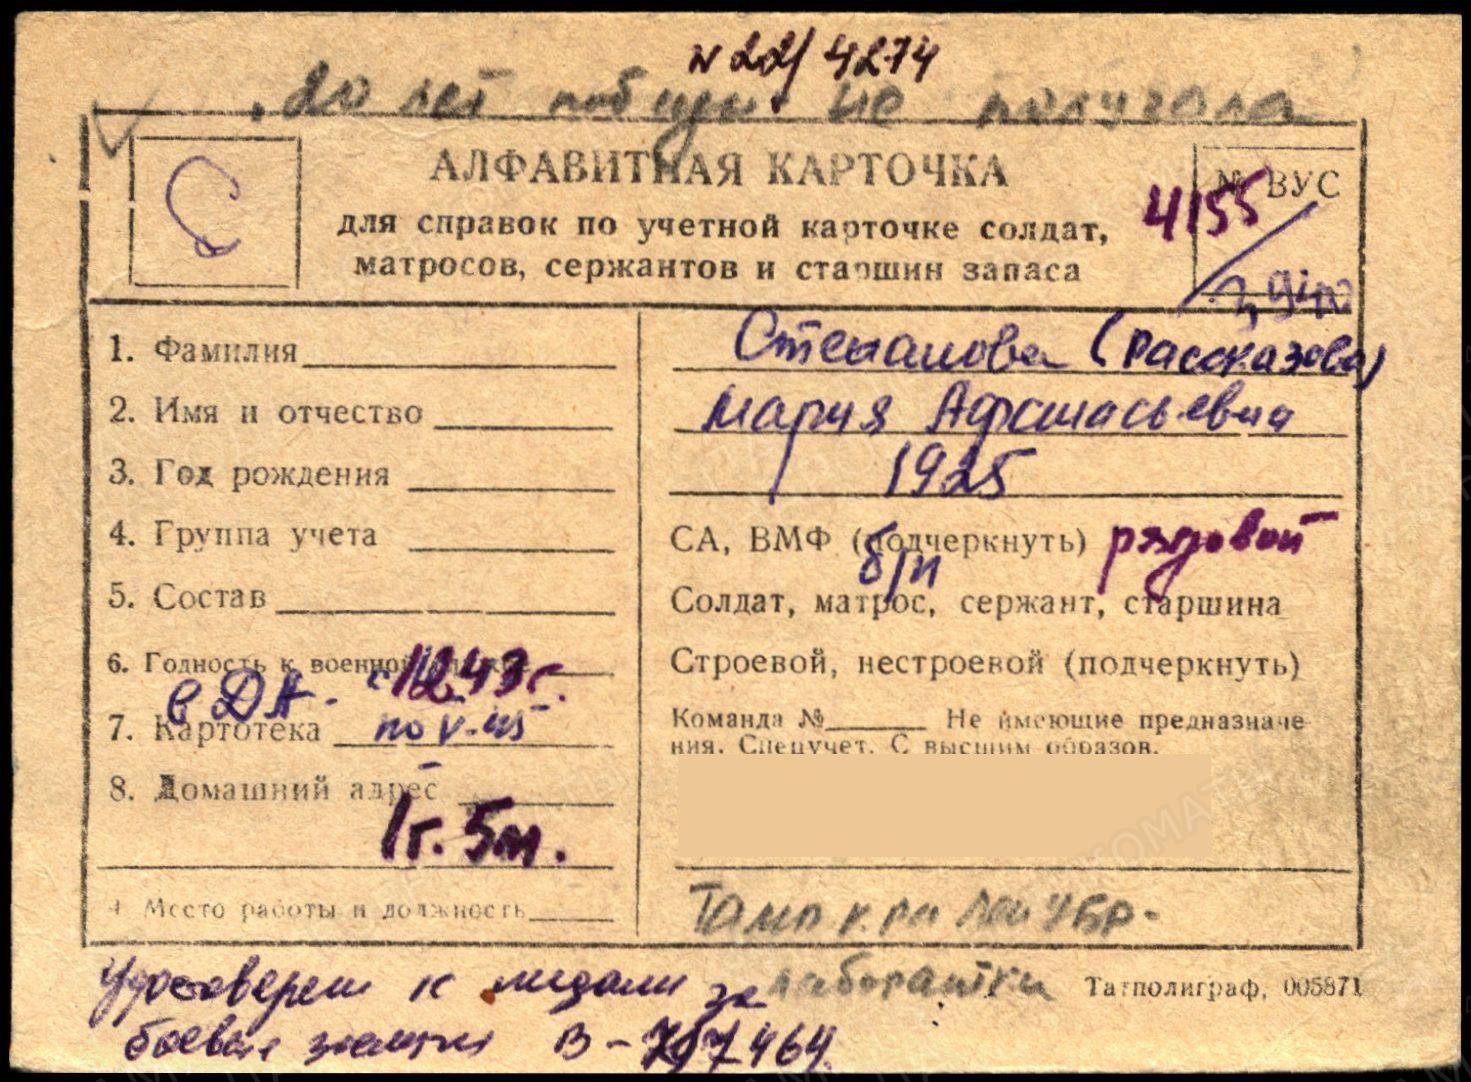 N 22/4274
20 лет победы не получала
С
АЛФАВИТНАЯ КАРТОЧКА
для справок по учетной карточке солдат,
матросов, сержантов и старшин запаса
№ ВУС
4155
1. Фамилия Степанова (Рассказова)
2. Имя и отчество Мария Афанасьевна
3. Год рождения 1925
4. Группа учета СА, ВМФ (подчеркнуть) рядовой
б/п
5. Состав Солдат, матрос, сержант, старшина
6. Годность к военной Строевой, нестроевой (подчеркнуть)
в ДА - с 1243г.
7. Картотека по V-45
Команда № Не имеющие предназначе
ния. Спецучет. С высшим образов.
8. Домашний адрес
1г. 5м.
9. Место работы и должность
лаборантка
Татполиграф, 005871
Удостоверен к медали за
боевые заслуги В-797464